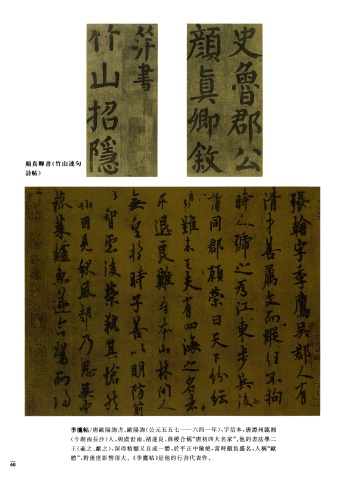 史魯郡公
顏真卿叙
竝書
竹山招隱
顏真卿書《竹山連句
詩帖》
張翰字季鷹吳郡人有
清才善屬文而縱任不拘
時人號之為江東步兵後
謂同郡顧榮曰天下紛紜
禍難未已夫有四海之名者
求退良難吾本山林間人
無望於時子善以明防前
以智慮後榮執其愴然
翰因見秋風起乃思吳中
菰菜鱸魚遂命駕而歸
季鷹帖/唐歐陽詢書。歐陽詢(公元五五七——六四一年),字信本,唐潭州臨湘
(今湖南長沙)人,與虞世南、褚遂良、薛稷合稱“唐初四大名家”。他的書法學二
王(羲之、獻之),深得精髓又自成一體,於平正中險絕,當時頗負盛名,人稱“歐
體”,對後世影響很大。《季鷹帖》是他的行書代表作。
60